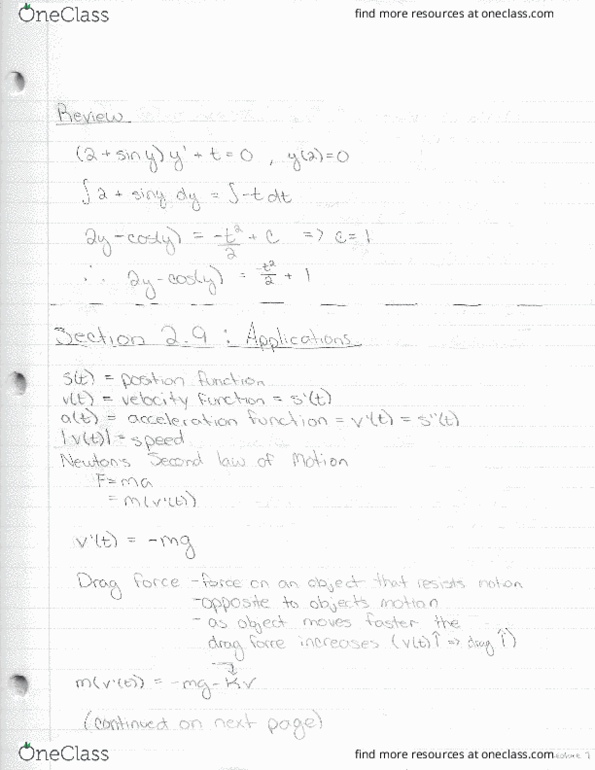 OneClass
find more resources at oneclass.com
Review
(2 + sin y) y' + t = 0 , y(2)=0
∫ 2 + sin y dy = ∫ -t dt
2y - cos(y) = -t²/2 + C => C = 1
∴ 2y - cos(y) = -t²/2 + 1
Section 2.9 : Applications
s(t) = position function
v(t) = velocity function = s'(t)
a(t) = acceleration function = v'(t) = s''(t)
|v(t)| = speed
Newton's Second law of Motion
F = ma
= m(v'(t))
v'(t) = -mg
Drag force - force on an object that resists motion
- opposite to objects motion
- as object moves faster the
drag force increases (v(t)↑ => drag ↑)
m(v'(t)) = -mg - Kv
(continued on next page)
OneClass
find more resources at oneclass.com